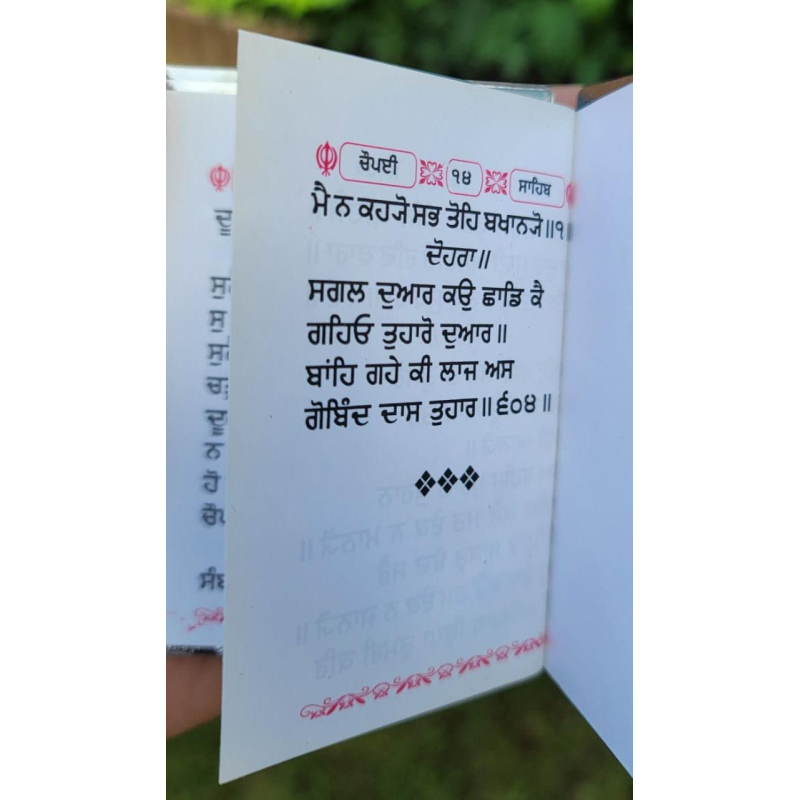 ਚੌਪਈ ੧੪ ਸਾਹਿਬ
ਮੈ ਨ ਕਹ੍ਯੋ ਸਭ ਤੋਹਿ ਬਖਾਨ੍ਯੋ॥੧॥
ਦੋਹਰਾ॥
ਸਗਲ ਦੁਆਰ ਕਉ ਛਾਡਿ ਕੈ
ਗਹਿਓ ਤੁਹਾਰੋ ਦੁਆਰ॥
ਬਾਂਹਿ ਗਹੇ ਕੀ ਲਾਜ ਅਸ
ਗੋਬਿੰਦ ਦਾਸ ਤੁਹਾਰ॥੬੦੪॥
ਨ
ਹੋ